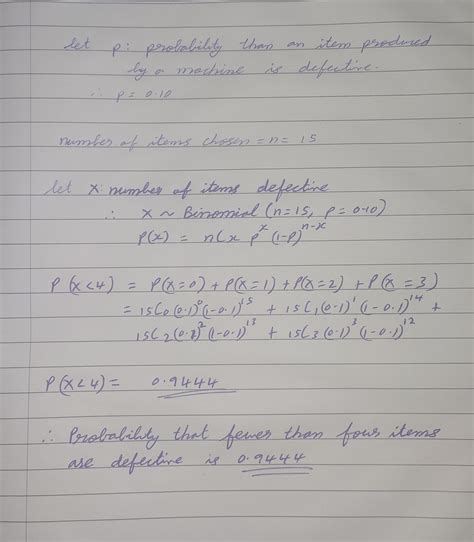 let p: probability than an item produced
by a machine is defective.
∴ p = 0.10
number of items chosen = n = 15
let X: number of items defective
∴ X ~ Binomial (n=15, p = 0.10)
P(x) = nCx p^x (1-p)^n-x
P(X<4) = P(X=0) + P(X=1) + P(X=2) + P(X=3)
= 15C0 (0.1)^0 (1-0.1)^15 + 15C1 (0.1)^1 (1-0.1)^14 +
15C2 (0.1)^2 (1-0.1)^13 + 15C3 (0.1)^3 (1-0.1)^12
P(X<4) = 0.9444
∴ Probability that fewer than four items
are defective is 0.9444